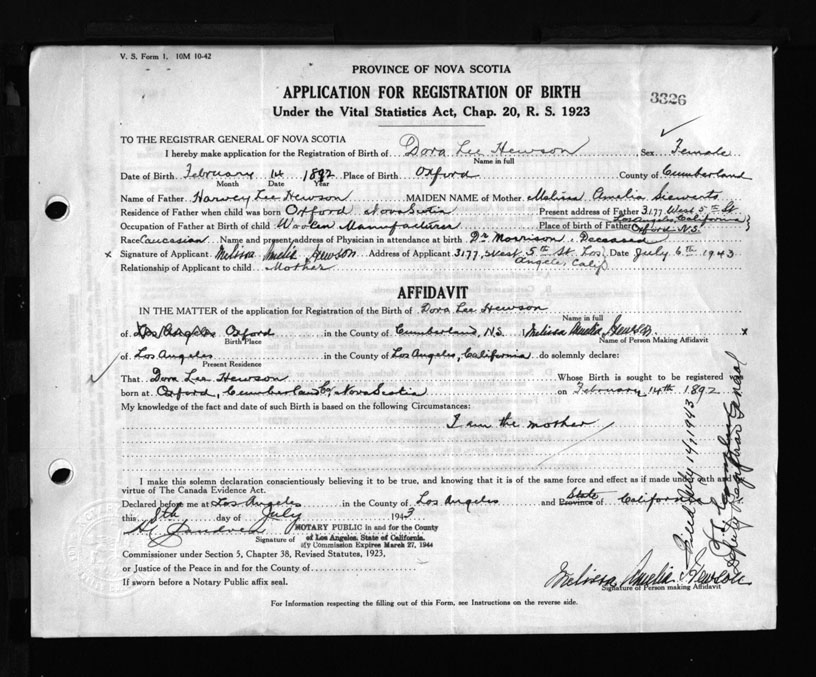 V. S. Form 1. 10M 10-42
PROVINCE OF NOVA SCOTIA
APPLICATION FOR REGISTRATION OF BIRTH
3326
Under the Vital Statistics Act, Chap. 20, R. S. 1923
TO THE REGISTRAR GENERAL OF NOVA SCOTIA
I hereby make application for the Registration of Birth of Dora Lee Hewson Sex Female
Name in full
Date of Birth February 14 1892 Place of Birth Oxford County of Cumberland
Month Date Year
Name of Father Harvey Lee Hewson MAIDEN NAME of Mother Melissa Amelia
Residence of Father when child was born Oxford Nova Scotia Present address of Father 3177 West 5th St
Los Angeles, California
Occupation of Father at Birth of Child Woolen Manufacturer Place of birth of Father Oxford N.S.
Race Caucasian Name and present address of Physician in attendance at birth Dr Morrison, Deceased
x Signature of Applicant Melissa Amelia Hewson Address of Applicant 3177 West 5th St. Los Date July 6th 1943
Angeles, Calif
Relationship of Applicant to child Mother
AFFIDAVIT
IN THE MATTER of the application for Registration of the Birth of Dora Lee Hewson
Name in full
of Los Angeles Oxford in the County of Cumberland, N.S. Melissa Amelia Hewson x
Birth Place Name of Person Making Affidavit
of Los Angeles in the County of Los Angeles, California do solemnly declare:
Present Residence
That Dora Lee Hewson Whose Birth is sought to be registered was
born at Oxford, Cumberland Co, Nova Scotia on February 14th 1892
My knowledge of the fact and date of such Birth is based on the following Circumstances:
I am the mother
I make this solemn declaration conscientiously believing it to be true, and knowing that it is of the same force and effect as if made under oath and by
virtue of The Canada Evidence Act.
Declared before me at Los Angeles in the County of Los Angeles and State Province of California
this 8th day of July 1943
NOTARY PUBLIC in and for the County
Signature of of Los Angeles, State of California.
My Commission Expires March 27, 1944
Commissioner under Section 5, Chapter 38, Revised Statutes, 1923,
or Justice of the Peace in and for the County of
If sworn before a Notary Public affix seal.
Melissa Amelia Hewson
Signature of Person making Affidavit
For Information respecting the filling out of this Form, see Instructions on the reverse side.
Filed July 14, 1943
Deputy Registrar General